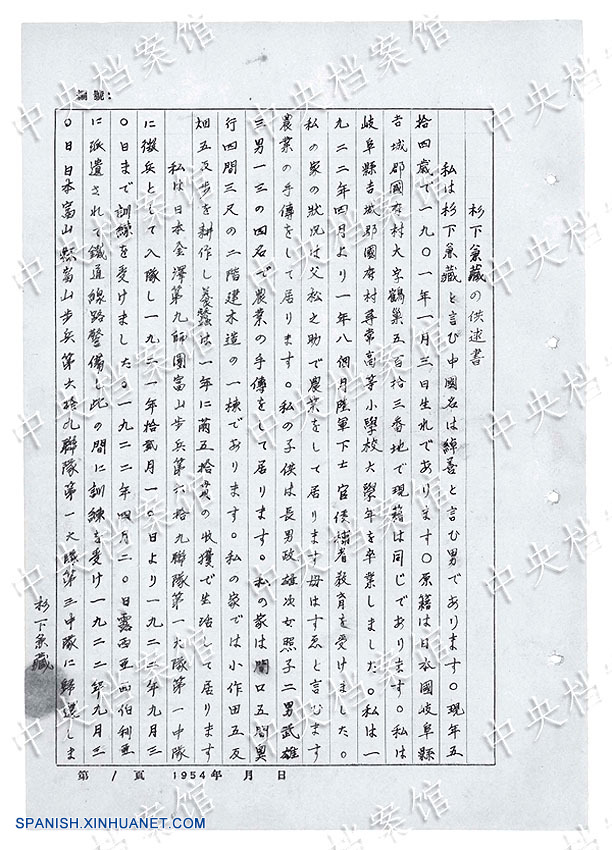 編號：
杉下兼藏の供述書
私は杉下兼藏と言ひ中國名は善と言ひ男であります〇現年五
拾四歳で一九〇一年一月三日生れであります〇原籍は日本國岐阜縣
吉城郡國府村大字鶴巣五百拾三番地で現籍は同じであります。私は
岐阜縣吉城郡國府村尋常高等小學校六學年を卒業しました。私は一
九二二年四月より一年八個月陸軍下士官候補者教育を受けました。
私の家の狀況は父松之助で農業をして居ります母はすゑと言ひます
農業の手傳をして居ります。私の子供は長男政雄次女照子二男武雄
三男一三の四名で農業の手傳をして居ります。私の家は間口五間奥
行四間三尺の二階建木造の一棟であります。私の家では小作田五反
畑五反歩を耕作し養蠶は一年に繭五拾貫の收獲で生活して居ります
私は日本金澤第九師團富山歩兵第六拾九聯隊第一大隊第一中隊
に徴兵として入隊し一九二一年拾弐月一〇日より一九二二年九月三
〇日まで訓練を受けました。一九二二年四月二〇日露西亜西伯利亜
に派遣されて鐵道線路警備と此の間に訓練を受け一九二二年九月三
〇日日本富山縣富山歩兵第六拾九聯隊第一大隊第三中隊に歸還しま
杉下兼藏
第 1 頁 1954年 月 日
中央档案馆
SPANISH.XINHUANET.COM